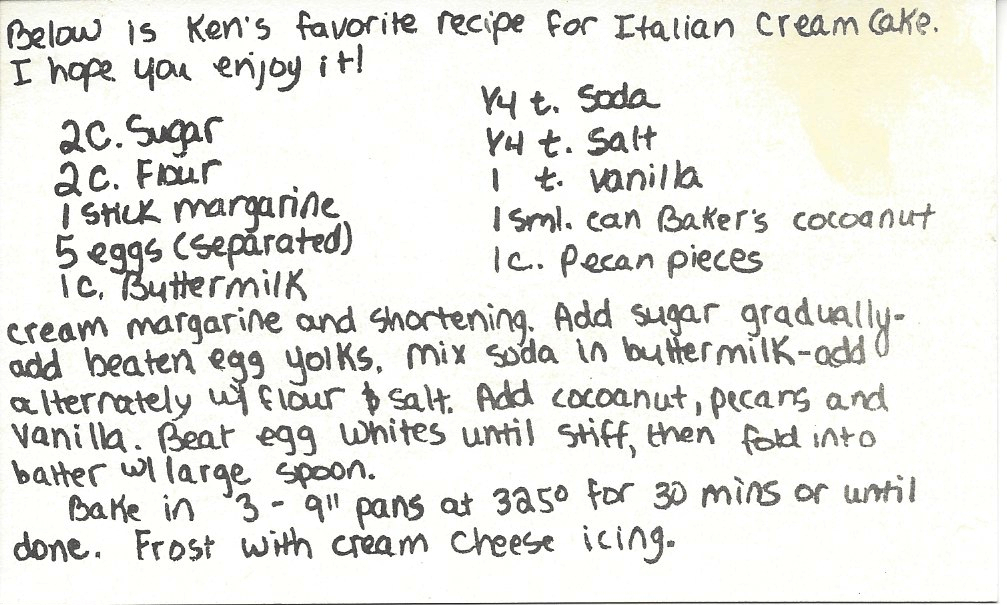 Below is Ken's favorite recipe for Italian Cream Cake.
I hope you enjoy it!
2C. Sugar
2C. Flour
1 stick margarine
5 eggs (separated)
1C. Buttermilk
1/4 t. Soda
1/4 t. Salt
1 t. vanilla
1 sml. can Baker's cocoanut
1c. Pecan pieces
cream margarine and shortening. Add sugar gradually-
add beaten egg yolks. Mix soda in buttermilk-add
alternately w/ flour & salt. Add cocoanut, pecans and
vanilla. Beat egg whites until stiff, then fold into
batter w/ large spoon.
Bake in 3 - 9" pans at 325° for 30 mins or until
done. Frost with cream cheese icing.